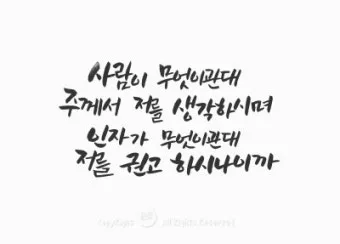 사람이 무엇이관대
주께서 저를 생각하시며
인자가 무엇이관대
저를 권고 하시나이까